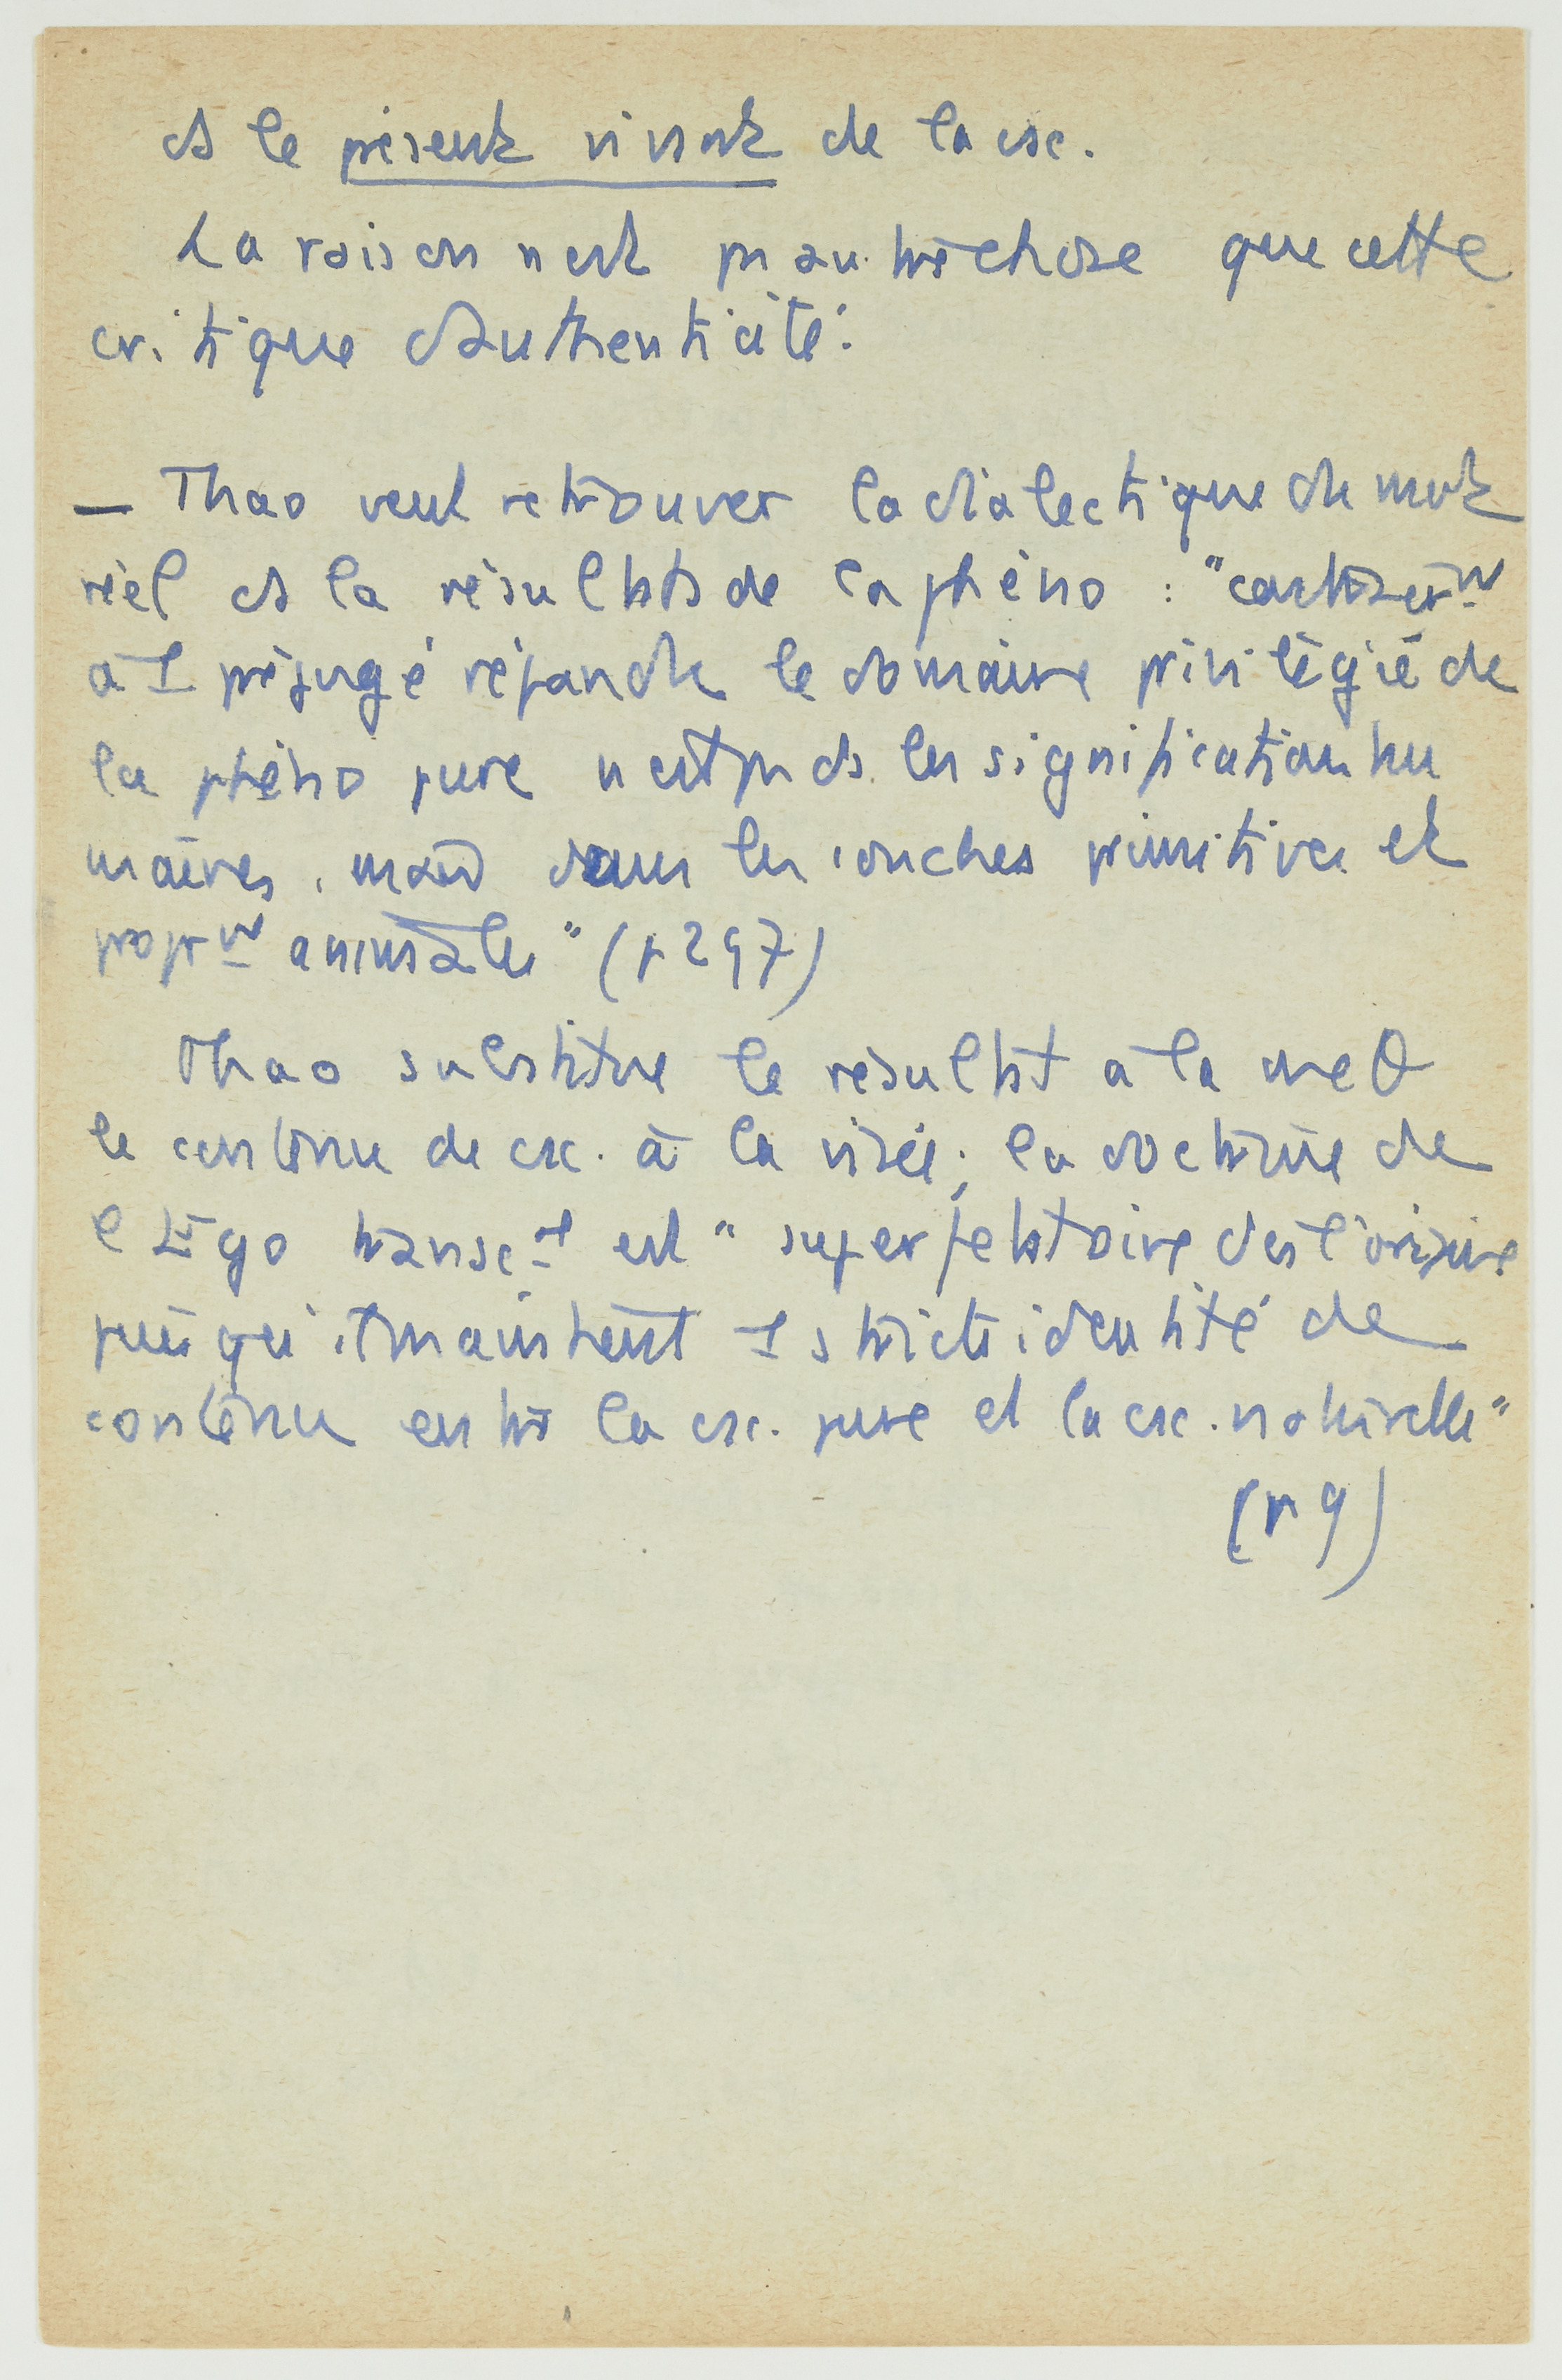 ds le présent vivant de la csc.
La raison n'est pas autre chose que cette
critique d'authenticité.
— Thao veut retrouver la dialectique du mvt
réel ds la résultats de la phéno : "contrairᵗ
à 1 préjugé répandu le domaine privilégié de
la phéno pure n'est pas ds les signification hu
maines, mais dans les couches primitives et
proprᵗ animales" (p 297)
Thao substitue le résultat à la
le contenu de csc. à la visée ; la doctrine de
l'Ego transcˡ est " superfétatoire dès l'origine
puisqu'il maintient 1 stricte identité de
contenu entre la csc. pure et la csc. naturelle"
(p 9)